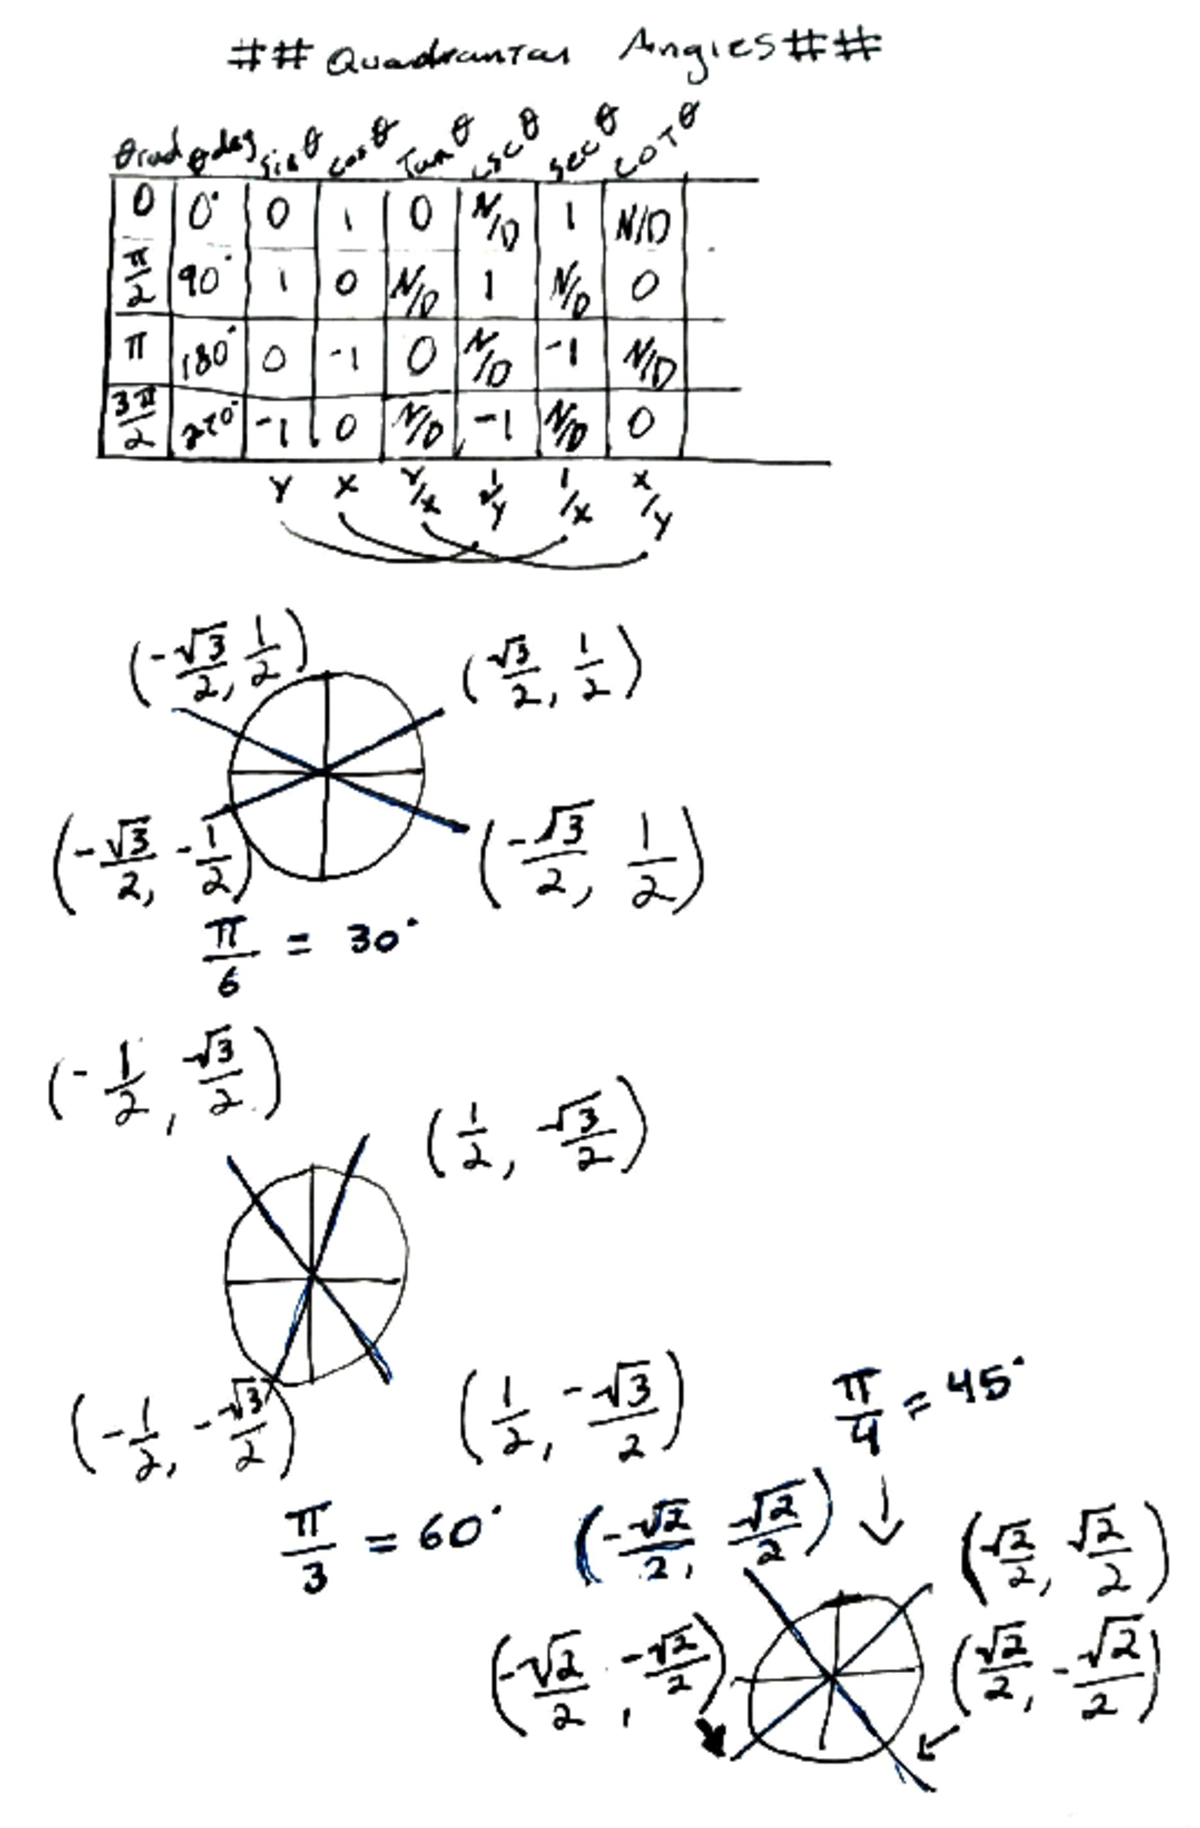 ## Quadrantal Angles ##
θrad θdeg sinθ cosθ Tanθ cscθ secθ COTθ
0 0° 0 1 0 N/D 1 N/D
π/2 90° 1 0 N/D 1 N/D 0
π 180° 0 -1 0 N/D -1 N/D
3π/2 270° -1 0 N/D -1 N/D 0
Y X Y/X 1/Y 1/X X/Y
(-√3/2, 1/2) (√3/2, 1/2)
(-√3/2, -1/2) (-√3/2, 1/2)
π/6 = 30°
(-1/2, √3/2)
(1/2, √3/2)
(-1/2, -√3/2) (1/2, -√3/2)
π/3 = 60°
π/4 = 45°
(-√2/2, √2/2) (√2/2, √2/2)
(-√2/2, -√2/2) (√2/2, -√2/2)